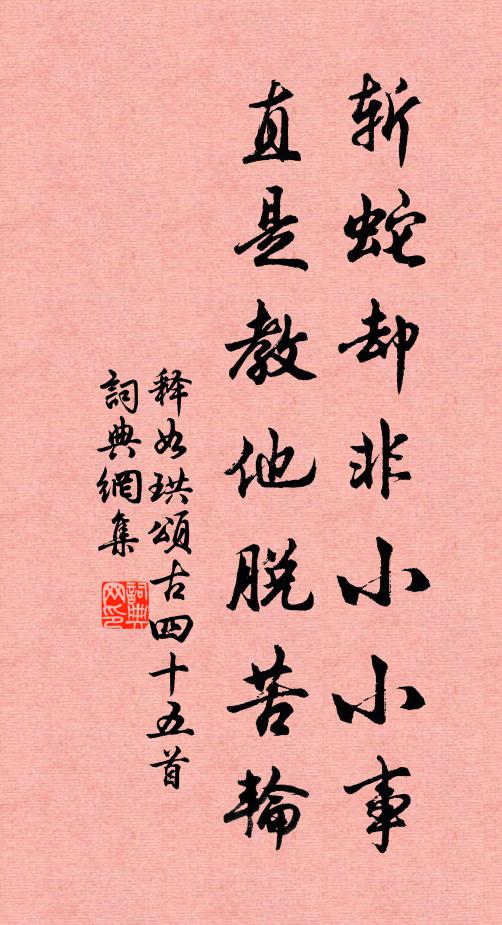 斬蛇却非小小事
直是教他脱苦輪
释如珙頌古四十五首
詞典網集
詞典网印